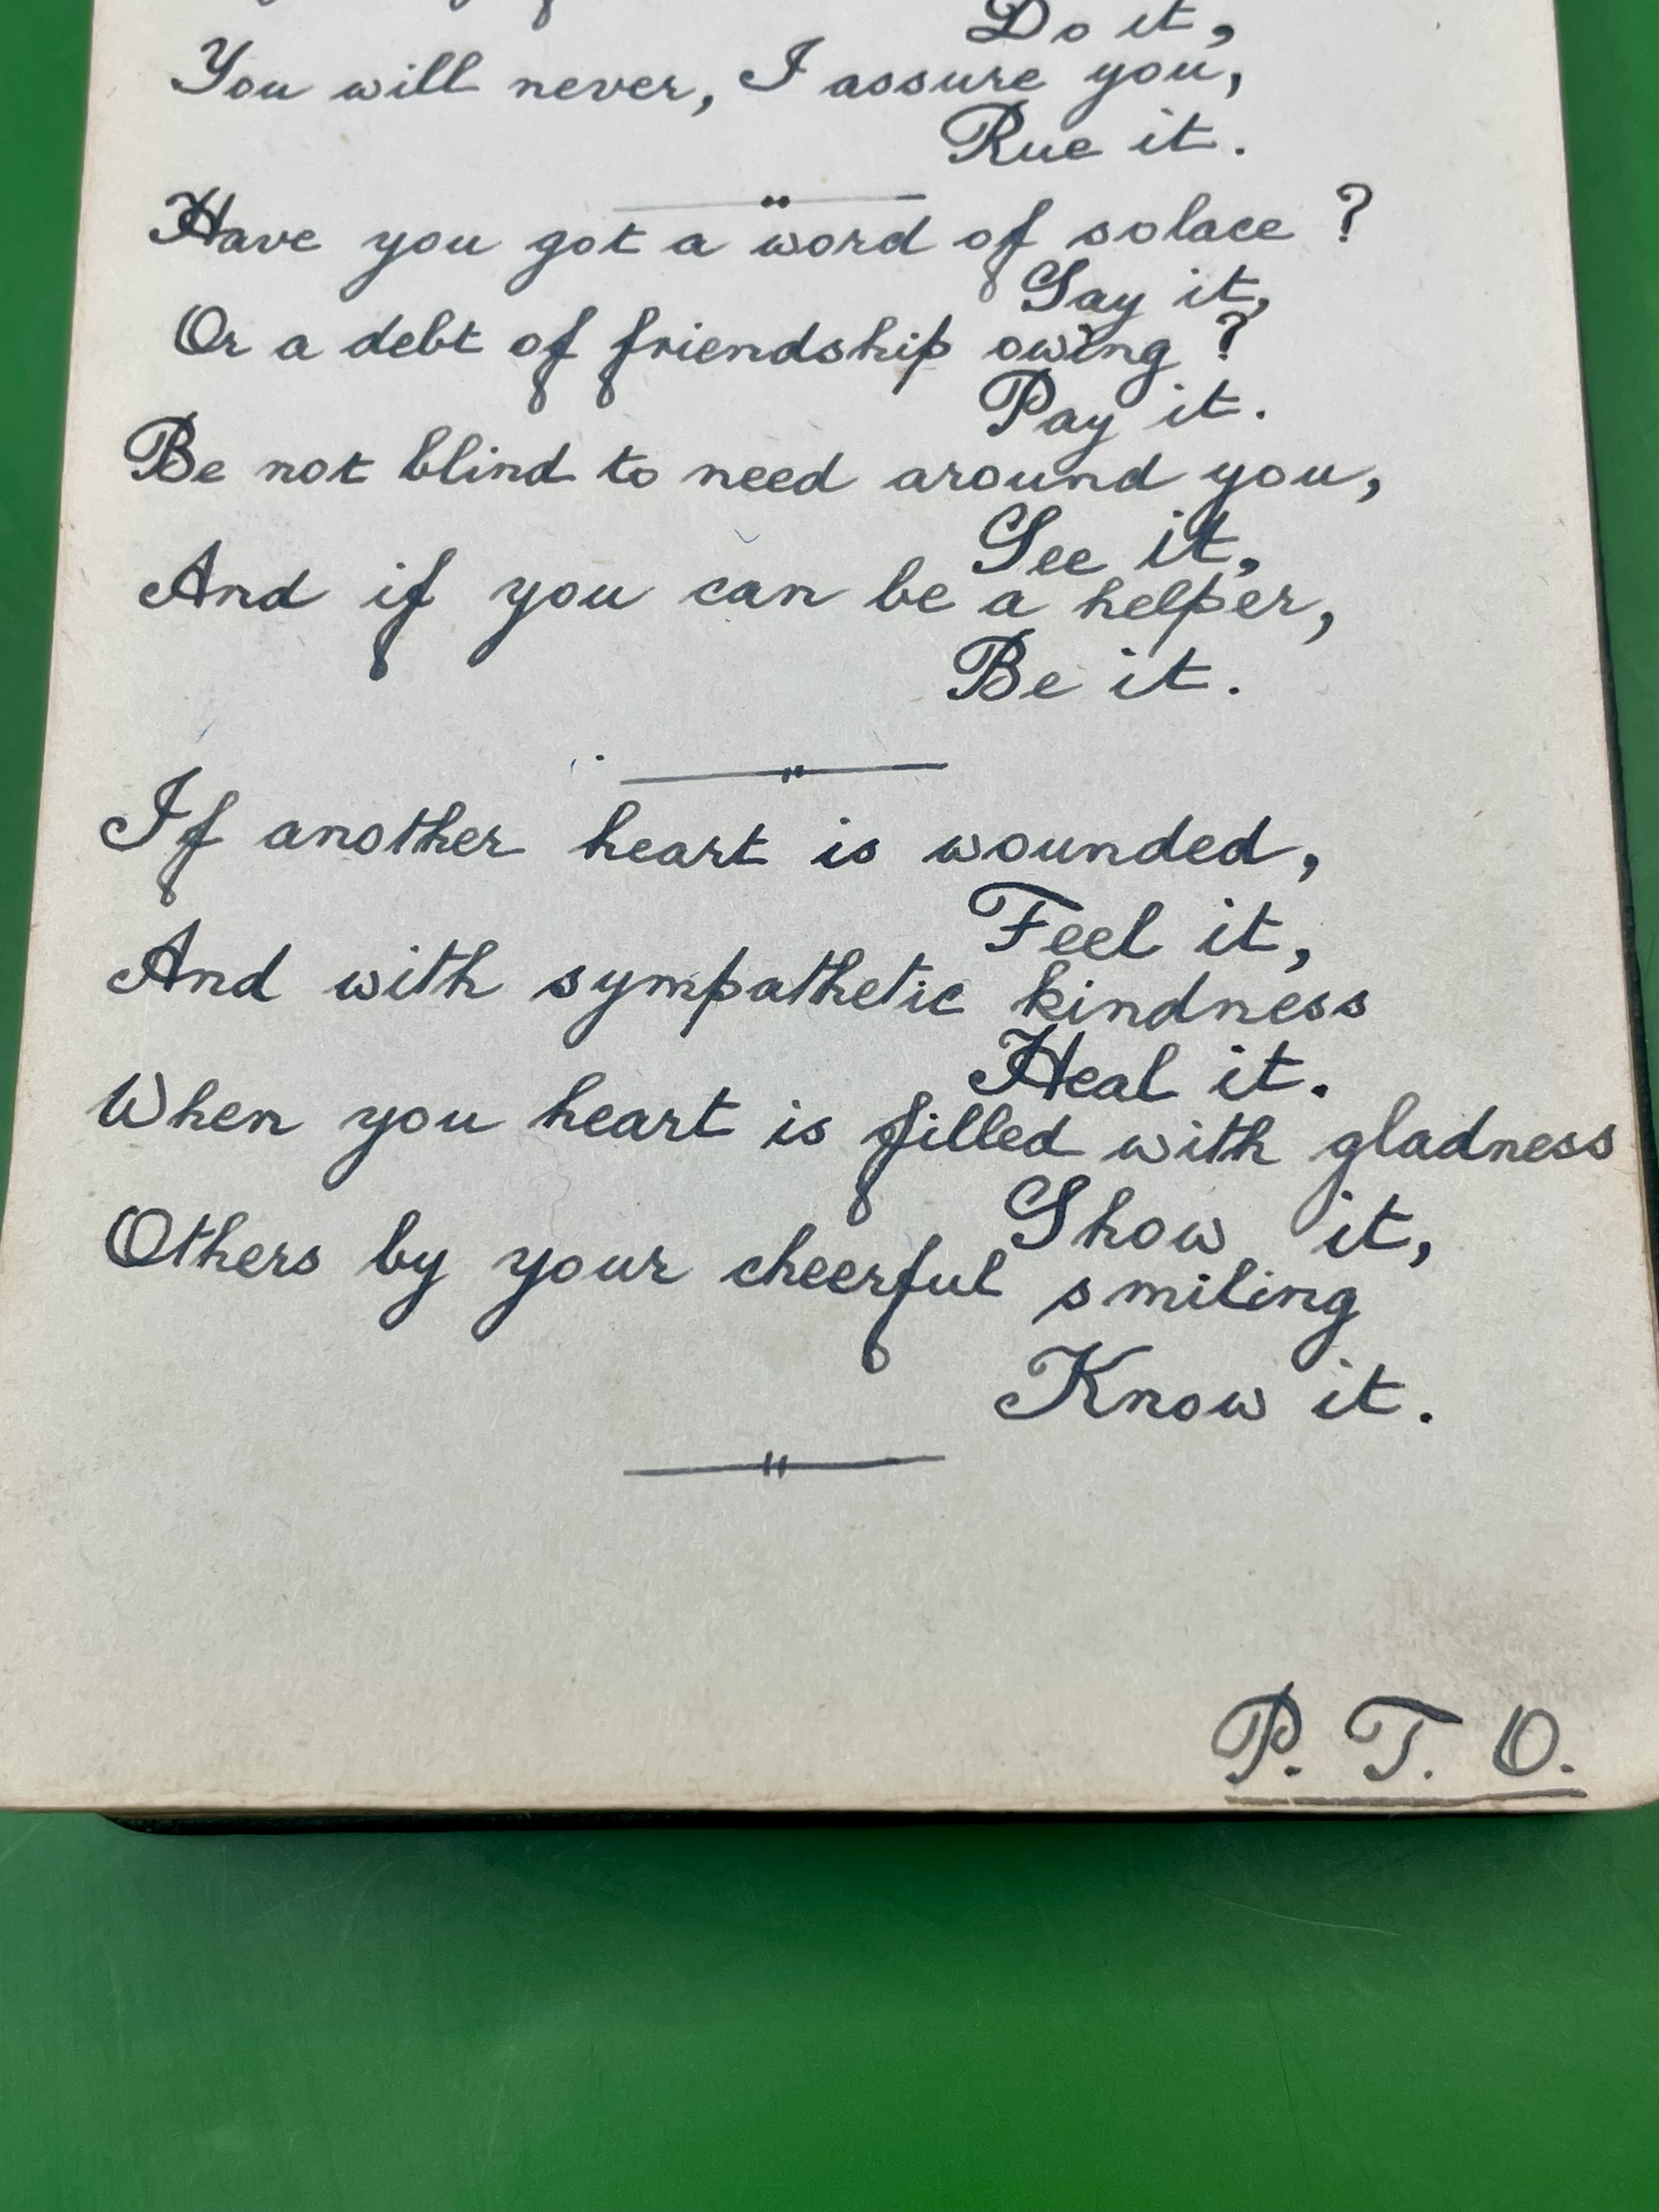 Do it,
You will never, I assure you,
Rue it.
Have you got a word of solace ?
Say it,
Or a debt of friendship owing ?
Pay it.
Be not blind to need around you,
See it,
And if you can be a helper,
Be it.
If another heart is wounded,
Feel it,
And with sympathetic kindness
Heal it.
When you heart is filled with gladness
Show it,
Others by your cheerful smiling
Know it.
P. T. O.